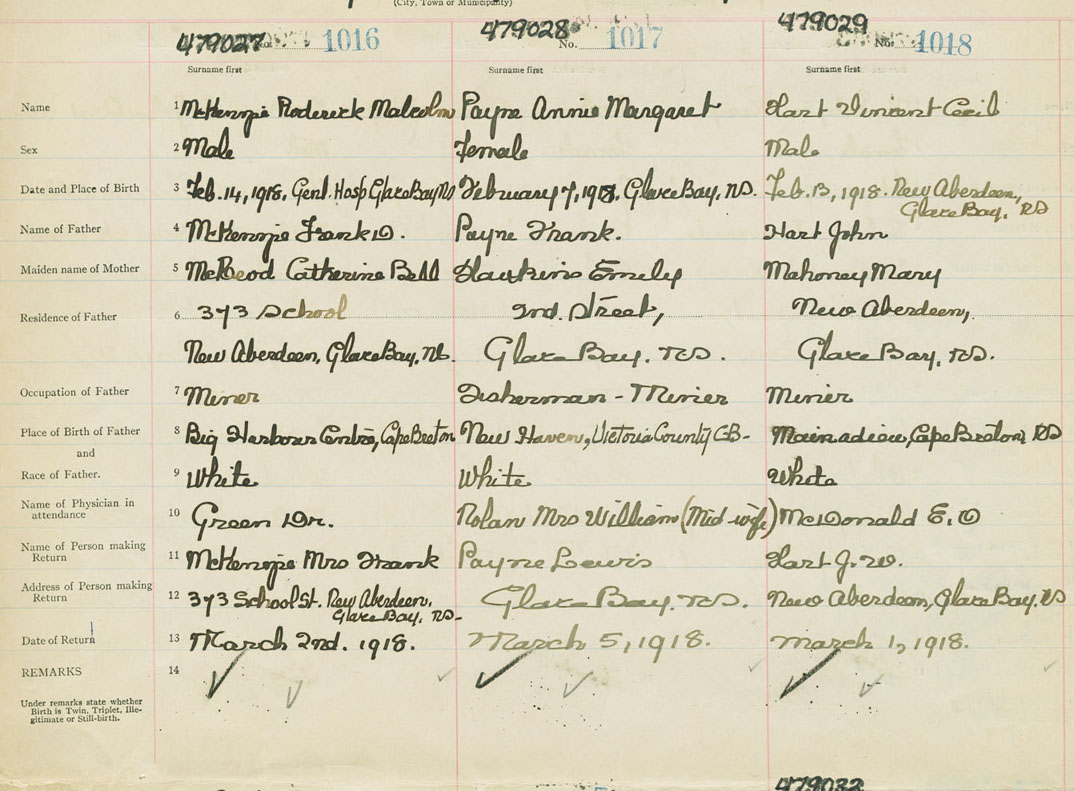 (City, Town or Municipality)
479027 1016 479028 No. 1017 479029 No. 1018
Surname first Surname first Surname first
Name 1 McKenzie Roderick Malcolm Payne Annie Margaret Hart Vincent Cecil
Sex 2 Male Female Male
Date and Place of Birth 3 Feb. 14, 1918, Genl. Hosp Glace Bay NS February 7, 1918, Glace Bay, NS. Feb. 13, 1918. New Aberdeen,
Glace Bay, NS
Name of Father 4 McKenzie Frank D. Payne Frank. Hart John
Maiden name of Mother 5 McLeod Catherine Bell Hawkins Emely Mahoney Mary
Residence of Father 6 373 School 2nd. Street, New Aberdeen,
New Aberdeen, Glace Bay, NS. Glace Bay, NS. Glace Bay, NS.
Occupation of Father 7 Miner Fisherman - Miner Miner
Place of Birth of Father 8 Big Harbour Centre, Cape Breton New Haven, Victoria County CB- Mainadieu, Cape Breton, NS
and
Race of Father. 9 White White White
Name of Physician in
attendance 10 Green Dr. Nolan Mrs William (Mid-wife) McDonald E. O
Name of Person making
Return 11 McKenzie Mrs Frank Payne Lewis Hart J. W.
Address of Person making
Return 12 373 School St. New Aberdeen, Glace Bay, NS. New Aberdeen, Glace Bay, NS
Glace Bay, NS-
Date of Return 13 March 2nd. 1918. March 5, 1918. March 1, 1918.
REMARKS 14
Under remarks state whether
Birth is Twin, Triplet, Ille-
gitimate or Still-birth.
479032